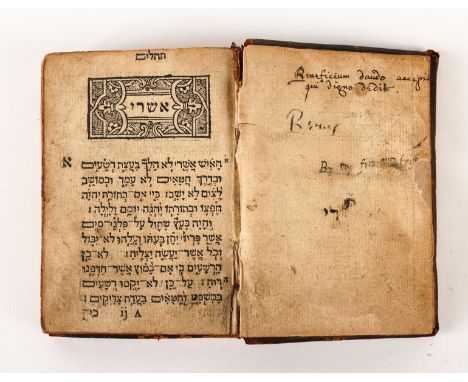 תהלים
אשרי
א האיש אשר לא הלך בעצת רשעים
ובדרך חטאים לא עמד ובמושב
לצים לא ישב: כי אם בתורת יהוה
חפצו ובתורתו יהגה יומם ולילה:
והיה כעץ שתול על פלגי מים
אשר פריו יתן בעתו ועלהו לא יבול
וכל אשר יעשה יצליח: לא כן
הרשעים כי אם כמוץ אשר תדפנו
רוח: על כן לא יקמו רשעים
במשפט וחטאים בעדת צדיקים:
A ij כי
Beneficium dando accepit
qui digno dedit.